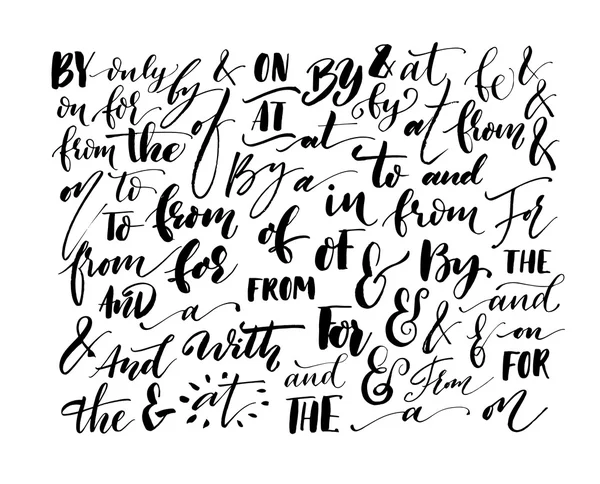 BY only by & ON BY & at be &
on for of AT by at from &
from the at &
on to By a to and
To from of in from For
from for of OF & By THE
AND a FROM and
& And with For & & & on
the & at and & From FOR
THE a on